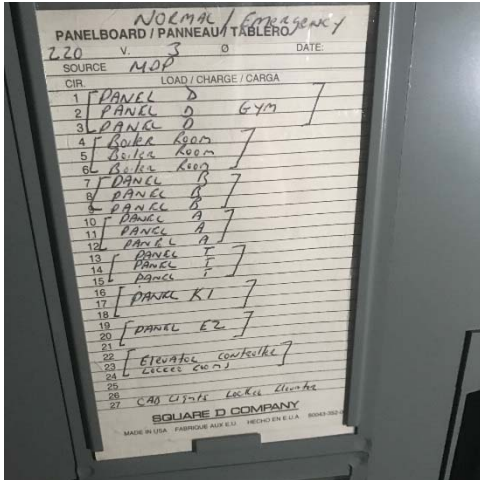 NORMAL / Emergency
PANELBOARD / PANNEAU / TABLERO
220 V. 3 Ø DATE:
SOURCE MDP
CIR. LOAD / CHARGE / CARGA
1 PANEL D
2 PANEL D GYM
3 PANEL D
4 Boiler Room
5 Boiler Room
6 Boiler Room
7 PANEL B
8 PANEL B
9 PANEL B
10 PANEL A
11 PANEL A
12 PANEL A
13 PANEL I
14 PANEL I
15 PANEL I
16
17 PANEL K1
18
19
20 PANEL E2
21
22
23 Elevator controller
24 Locker rooms
25
26
27 CAB Lights Locker Elevator
SQUARE D COMPANY
MADE IN USA FABRIQUE AUX E.U. HECHO EN E.U.A.